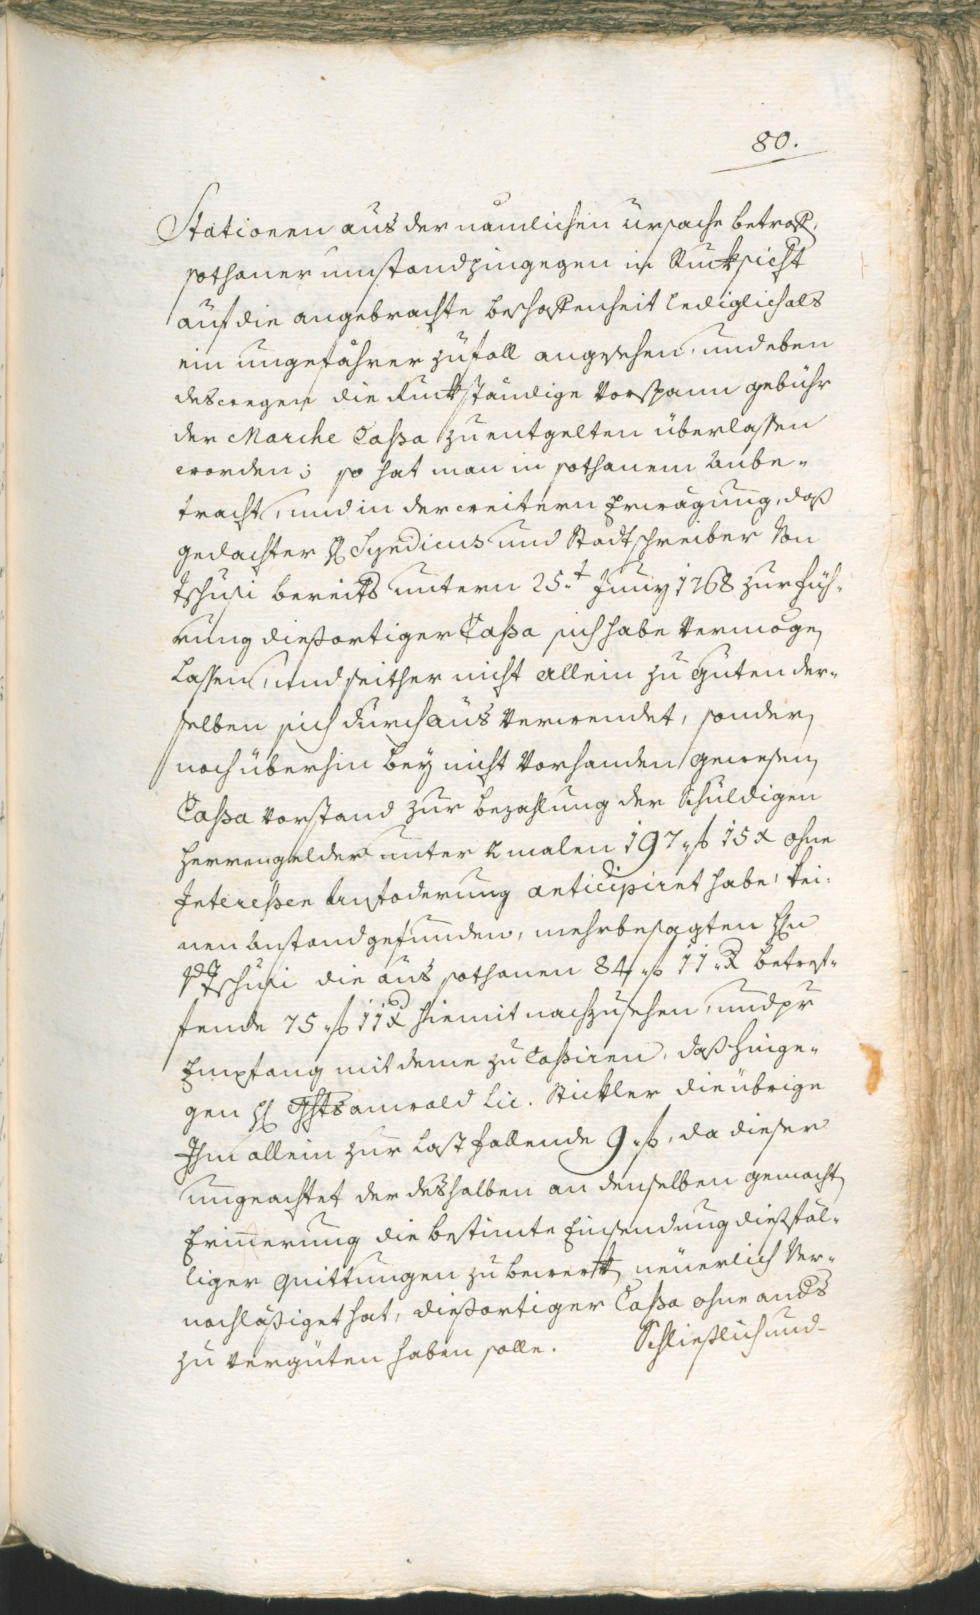 80.
Stationen aus der nämlichen ursache betroff,
sothaner umstand hingegen in Rucksicht
auf die angebrachte beschaffenheit lediglich als
ein ungefährer zufall angesehen, und eben
deswegen die Ruckständige Vorspann gebühr
der Marche Cassa zu entgelten überlassen
worden; so hat man in sothanem anbe-
tracht, und in der weitern Erwägung, daß
gedachter H Syndicus und Stadtschreiber Von
Tschusi bereits untern 25.t Juny 1768 zur füh-
rung diesortiger Cassa sich habe vermögen
lassen, und seither nicht allein zu guten der-
selben sich durchaus verwendet, sondern
noch überhin bey nicht vorhanden gewesen
Cassa vorstand zur bezahlung der schuldigen
Herrengelder unter 2 malen 197 f 15 x ohne
Interessen anfoderung anticipiret habe, kei-
nen anstand gefunden, mehrbesagten Hn
v Tschusi die aus sothanen 84 f 11 x betref-
fende 75 f 11 x hiemit nachzusehen, und pr
Empfang mit deme zu Cassiren, daß hinge-
gen H Ghtsanwald Lic. Stickler die übrige
Ihm allein zur last fallende 9 f, da dieser
ungeachtet der deshalben an denselben gemacht
Erinnerung die bestimte Einsendung diesfäl-
liger quittungen zu bewerkt neuerlich Ver-
nachläßiget hat, diesortiger Cassa ohne anders
zu vergüten haben solle. Schließlich und-